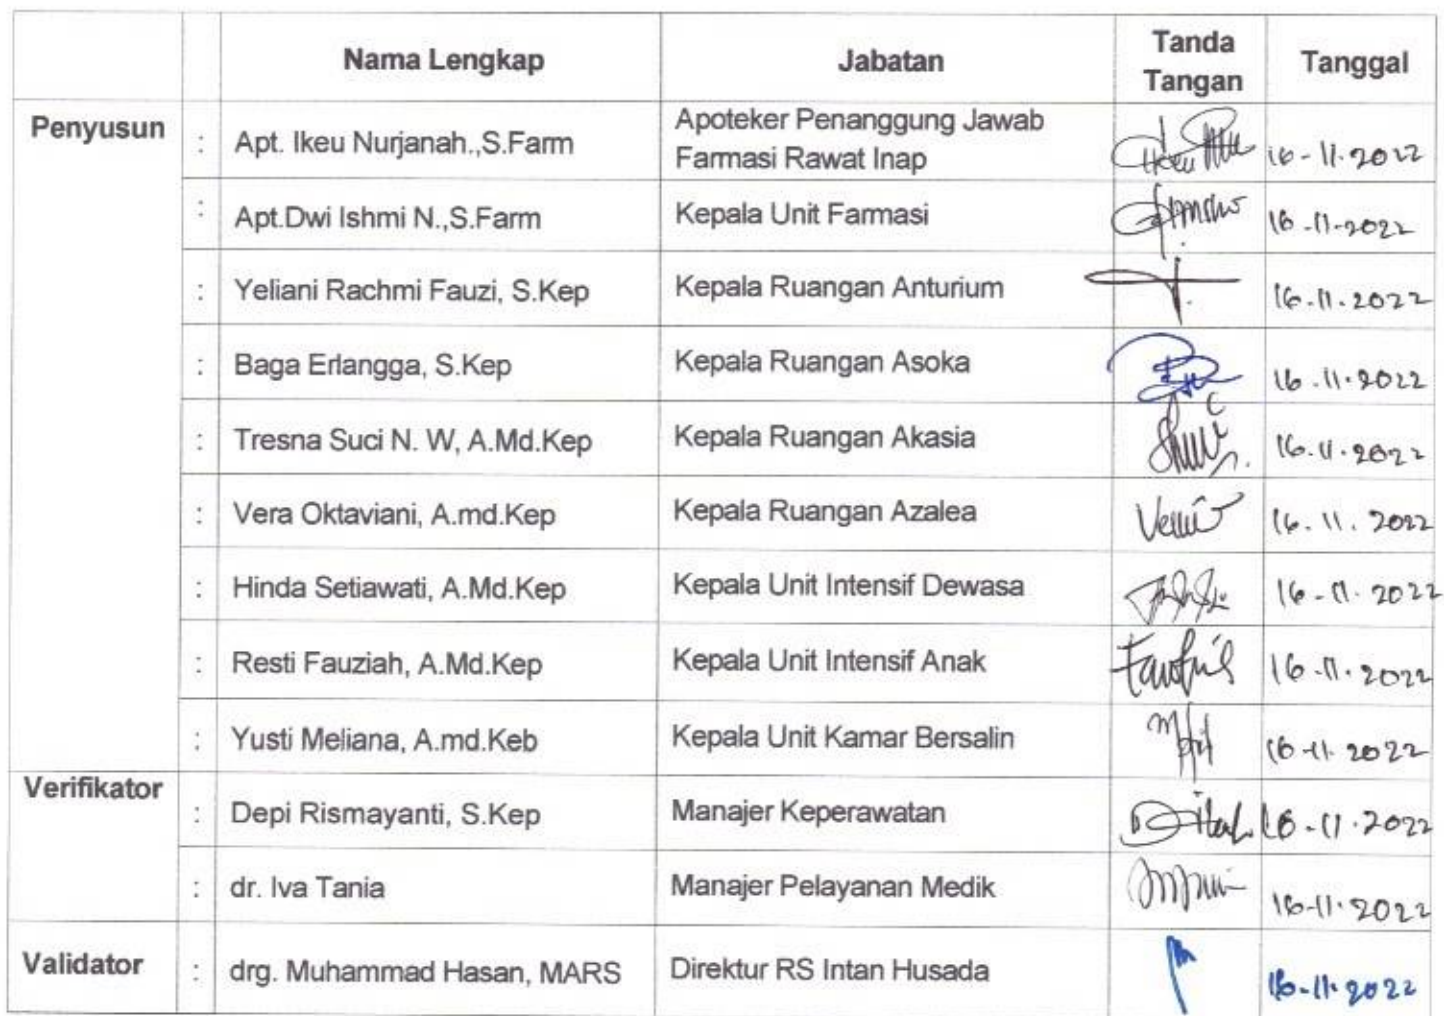 Nama Lengkap Jabatan Tanda Tangan Tanggal
Penyusun : Apt. Ikeu Nurjanah.,S.Farm Apoteker Penanggung Jawab Farmasi Rawat Inap 16-11-2022
: Apt.Dwi Ishmi N.,S.Farm Kepala Unit Farmasi 16-11-2022
: Yeliani Rachmi Fauzi, S.Kep Kepala Ruangan Anturium 16.11.2022
: Baga Erlangga, S.Kep Kepala Ruangan Asoka 16.11.2022
: Tresna Suci N. W, A.Md.Kep Kepala Ruangan Akasia 16.11.2022
: Vera Oktaviani, A.md.Kep Kepala Ruangan Azalea 16.11.2022
: Hinda Setiawati, A.Md.Kep Kepala Unit Intensif Dewasa 16-11.2022
: Resti Fauziah, A.Md.Kep Kepala Unit Intensif Anak 16-11.2022
: Yusti Meliana, A.md.Keb Kepala Unit Kamar Bersalin 16-11.2022
Verifikator : Depi Rismayanti, S.Kep Manajer Keperawatan 16-11.2022
: dr. Iva Tania Manajer Pelayanan Medik 16-11.2022
Validator : drg. Muhammad Hasan, MARS Direktur RS Intan Husada 16-11-2022